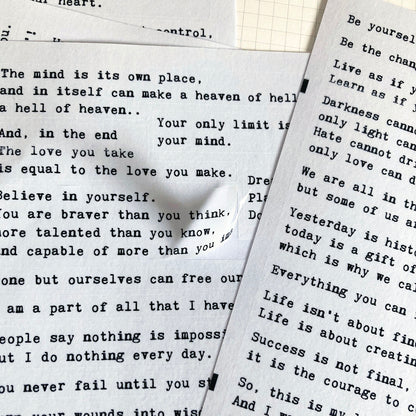 ur heart.
control,
The mind is its own place,
and in itself can make a heaven of hell
a hell of heaven..
And, in the end
The love you take
is equal to the love you make.
Your only limit is
your mind.
Believe in yourself.
You are braver than you think,
more talented than you know,
and capable of more than you
Dre
Pla
Do
one but ourselves can free our
am a part of all that I have
eople say nothing is impossi
ut I do nothing every day.
ou never fail until you st
your wounds into wis
Be yourself
Be the chan
Live as if y
Learn as if y
Darkness cann
only light can
Hate cannot dri
only love can d
We are all in th
but some of us ar
Yesterday is histo
today is a gift of
which is why we cal
Everything you can
Life isn't about find
Life is about creatin
Success is not final,
it is the courage to c
So, this is my l
And I w